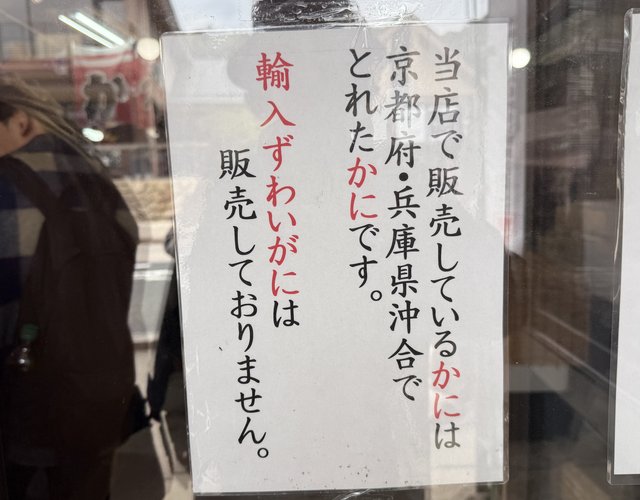 当店で販売しているかには
京都府・兵庫県沖合で
とれたかにです。
輸入ずわいがには
販売しておりません。
か